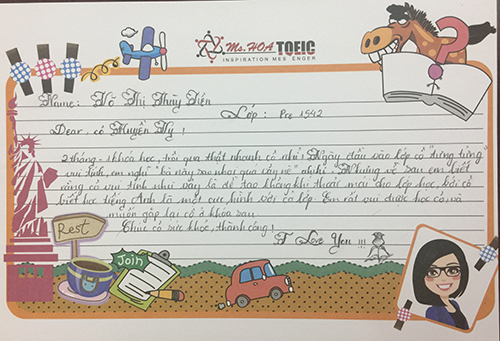 Ms. HOA TOEIC
INSPIRATION MESSENGER
Name: Hồ Thị Thùy Tiên
Lớp: Pre 1542
Dear: cô Huyền My!
2 tháng - 1 khóa học, trôi qua thật nhanh cô nhỉ! Ngày đầu vào lớp cô "tưng tửng"
vui tính, em nghĩ "bà này sao nhạt quá vậy nè" hihi. Nhưng về sau em biết
rằng cô vui tính như vậy là để tạo không khí thoải mái cho lớp học, bởi cô
biết học tiếng Anh là một cực hình với cả lớp. Em rất vui được học cô và
muốn gặp lại cô ở khóa sau.
Chúc cô sức khỏe, thành công!
I Love You !!!
Rest
Join